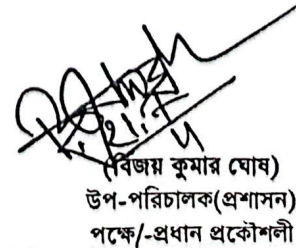 (বিজয় কুমার ঘোষ)
উপ-পরিচালক(প্রশাসন)
পক্ষে/-প্রধান প্রকৌশলী